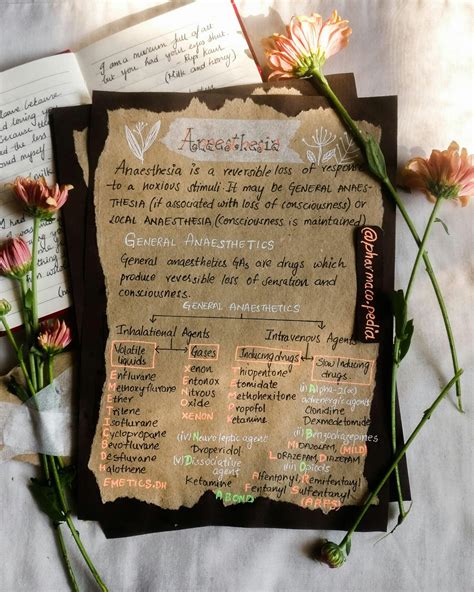 I am a museum full of art
but you had your eyes shut.
Rupi Kaur
(Milk and honey)
and myself
Anaesthesia
Anaesthesia is a reversible loss of response
to a noxious stimuli. It may be GENERAL ANAES-
THESIA (if associated with loss of consciousness) or
LOCAL ANAESTHESIA (consciousness is maintained)
GENERAL ANAESTHETICS
General anaesthetics GAs are drugs which
produce reversible loss of sensation and
consciousness.
@pharmaco.pedia
GENERAL ANAESTHETICS
Inhalational Agents
Intravenous Agents
Volatile liquids
Gases
Inducing drugs
Slow Inducing drugs
Enflurane
Methoxyflurane
Ether
Trilene
Isoflurane
Cyclopropane
Sevoflurane
Desflurane
Halothene
EMETICS.DH
Xenon
Entonox
Nitrous
Oxide
XENON
Thiopentone
Etomidate
Methohexitone
Propofol
Ketamine
(i) Alpha-2(α)
adrenergic agent
Clonidine
Dexmedetomide
(ii) Benzodiazepines
MIDAZOLAM, (MILD)
LORAZEPAM, DIAZEPAM
(iii) Opiods
Alfentonyl, Remifentanyl
Fentanyl, Sulfentanyl
(ARFS)
(iv) Neuroleptic agent
Droperidol
(v) Dissociative
agent
Ketamine
ABOND